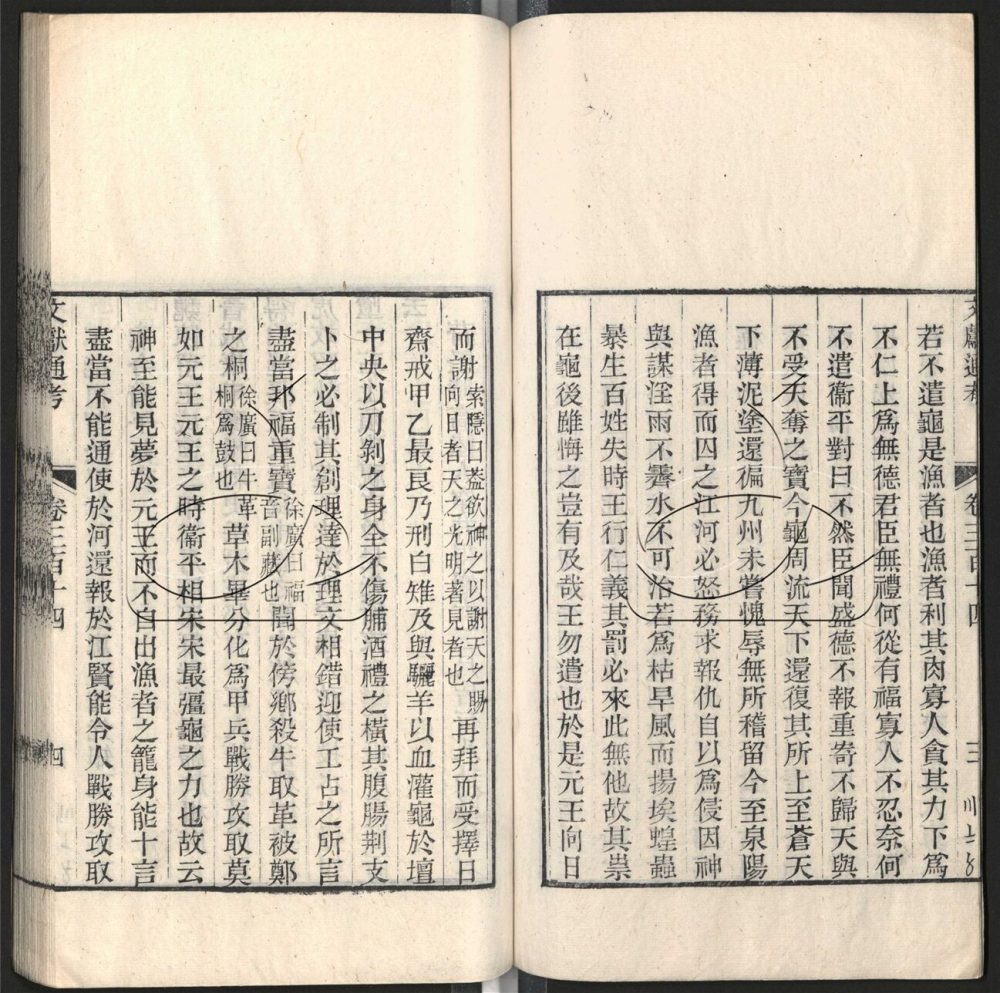 文獻通考 卷三百十四 三
若不遣龜是漁者也漁者利其肉寡人貪其力下爲
不仁上爲無德君臣無禮何從有福寡人不忍奈何
不遣衞平對曰不然臣聞盛德不報重寄不歸天與
不受天奪之寶今龜周流天下還復其所上至蒼天
下薄泥塗還徧九州未嘗愧辱無所稽留今至泉陽
漁者得而囚之江河必怒務求報仇自以爲侵因神
與謀淫雨不霽水不可治若爲枯旱風而揚埃蝗蟲
暴生百姓失時王行仁義其罰必來此無他故其祟
在龜後雖悔之豈有及哉王勿遣也於是元王向日
而謝索隱曰蓋欲神之以謝天之賜向日者天之光明著見者也再拜而受擇日
齋戒甲乙最良乃刑白雉及與驪羊以血灌龜於壇
中央以刀剝之身全不傷脯酒禮之橫其腹腸荆支
卜之必制其創理達於理文相錯迎使工占之所言
盡當邦福重寶徐廣曰福音副藏也聞於傍鄉殺牛取革被鄭
之桐徐廣曰牛革桐爲鼓也草木畢分化爲甲兵戰勝攻取莫
如元王元王之時衞平相宋宋最彊龜之力也故云
神至能見夢於元王而不自出漁者之籠身能十言
盡當不能通使於河還報於江賢能令人戰勝攻取
文獻通考 卷三百十四 四